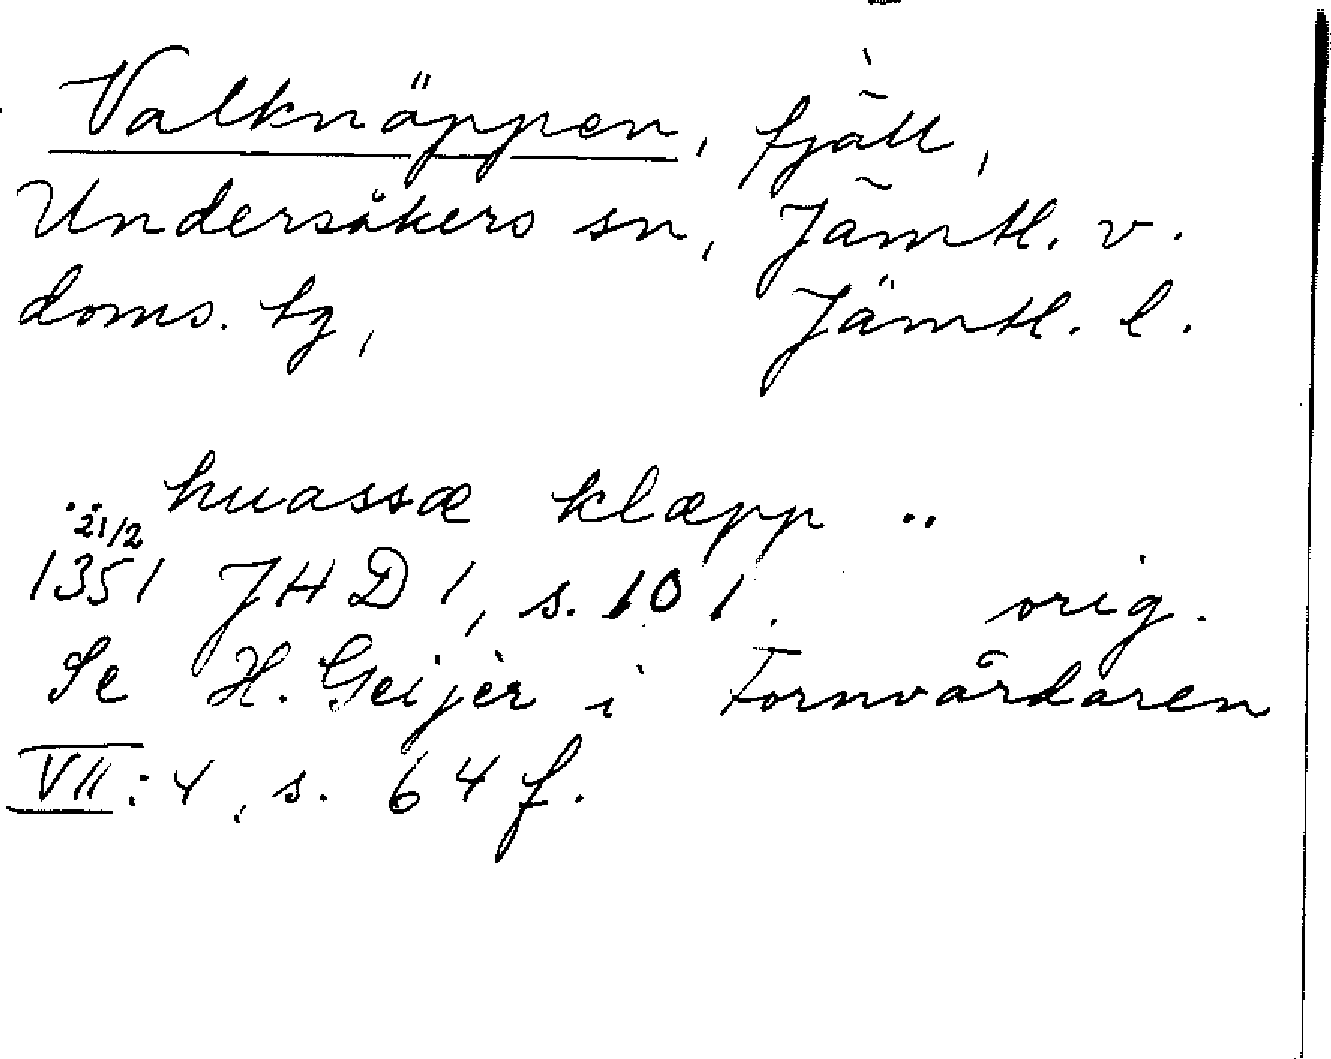 Valknäppen, fjäll,
Undersåkers sn, Jämtl. v.
doms. tg, Jämtl. l.
.. huassæ klæpp ..
21/2
1351 JHD 1, s. 101. orig.
Se H. Geijer i Fornvårdaren
VII: 4, s. 64 f.